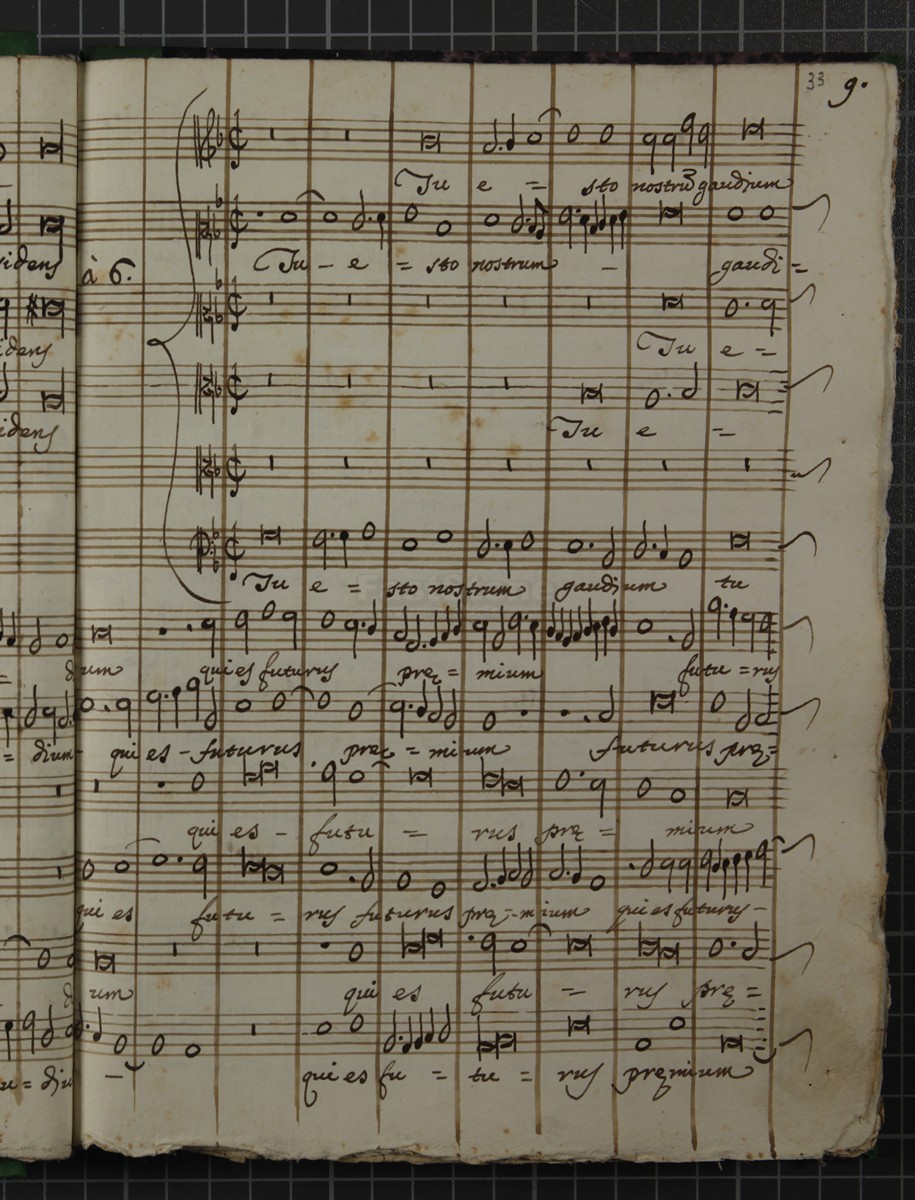 33 9.
Tu e = sto nostrũ gaudium
sidens
à 6.
Tu - e = sto nostrum - gaudi =
idens
Tu e =
idens
Tu e =
Tu e = sto nostrum gaudium tu
dium qui es futurus prę = mium futu = rus
= dium qui es - futurus prę = mium futurus prę =
qui es - futu = rus prę = mium
qui es futu = rus futurus prę = mium qui es futurus -
dium qui es futu = rus prę =
= diu - qui es fu = tu = rus pręmium